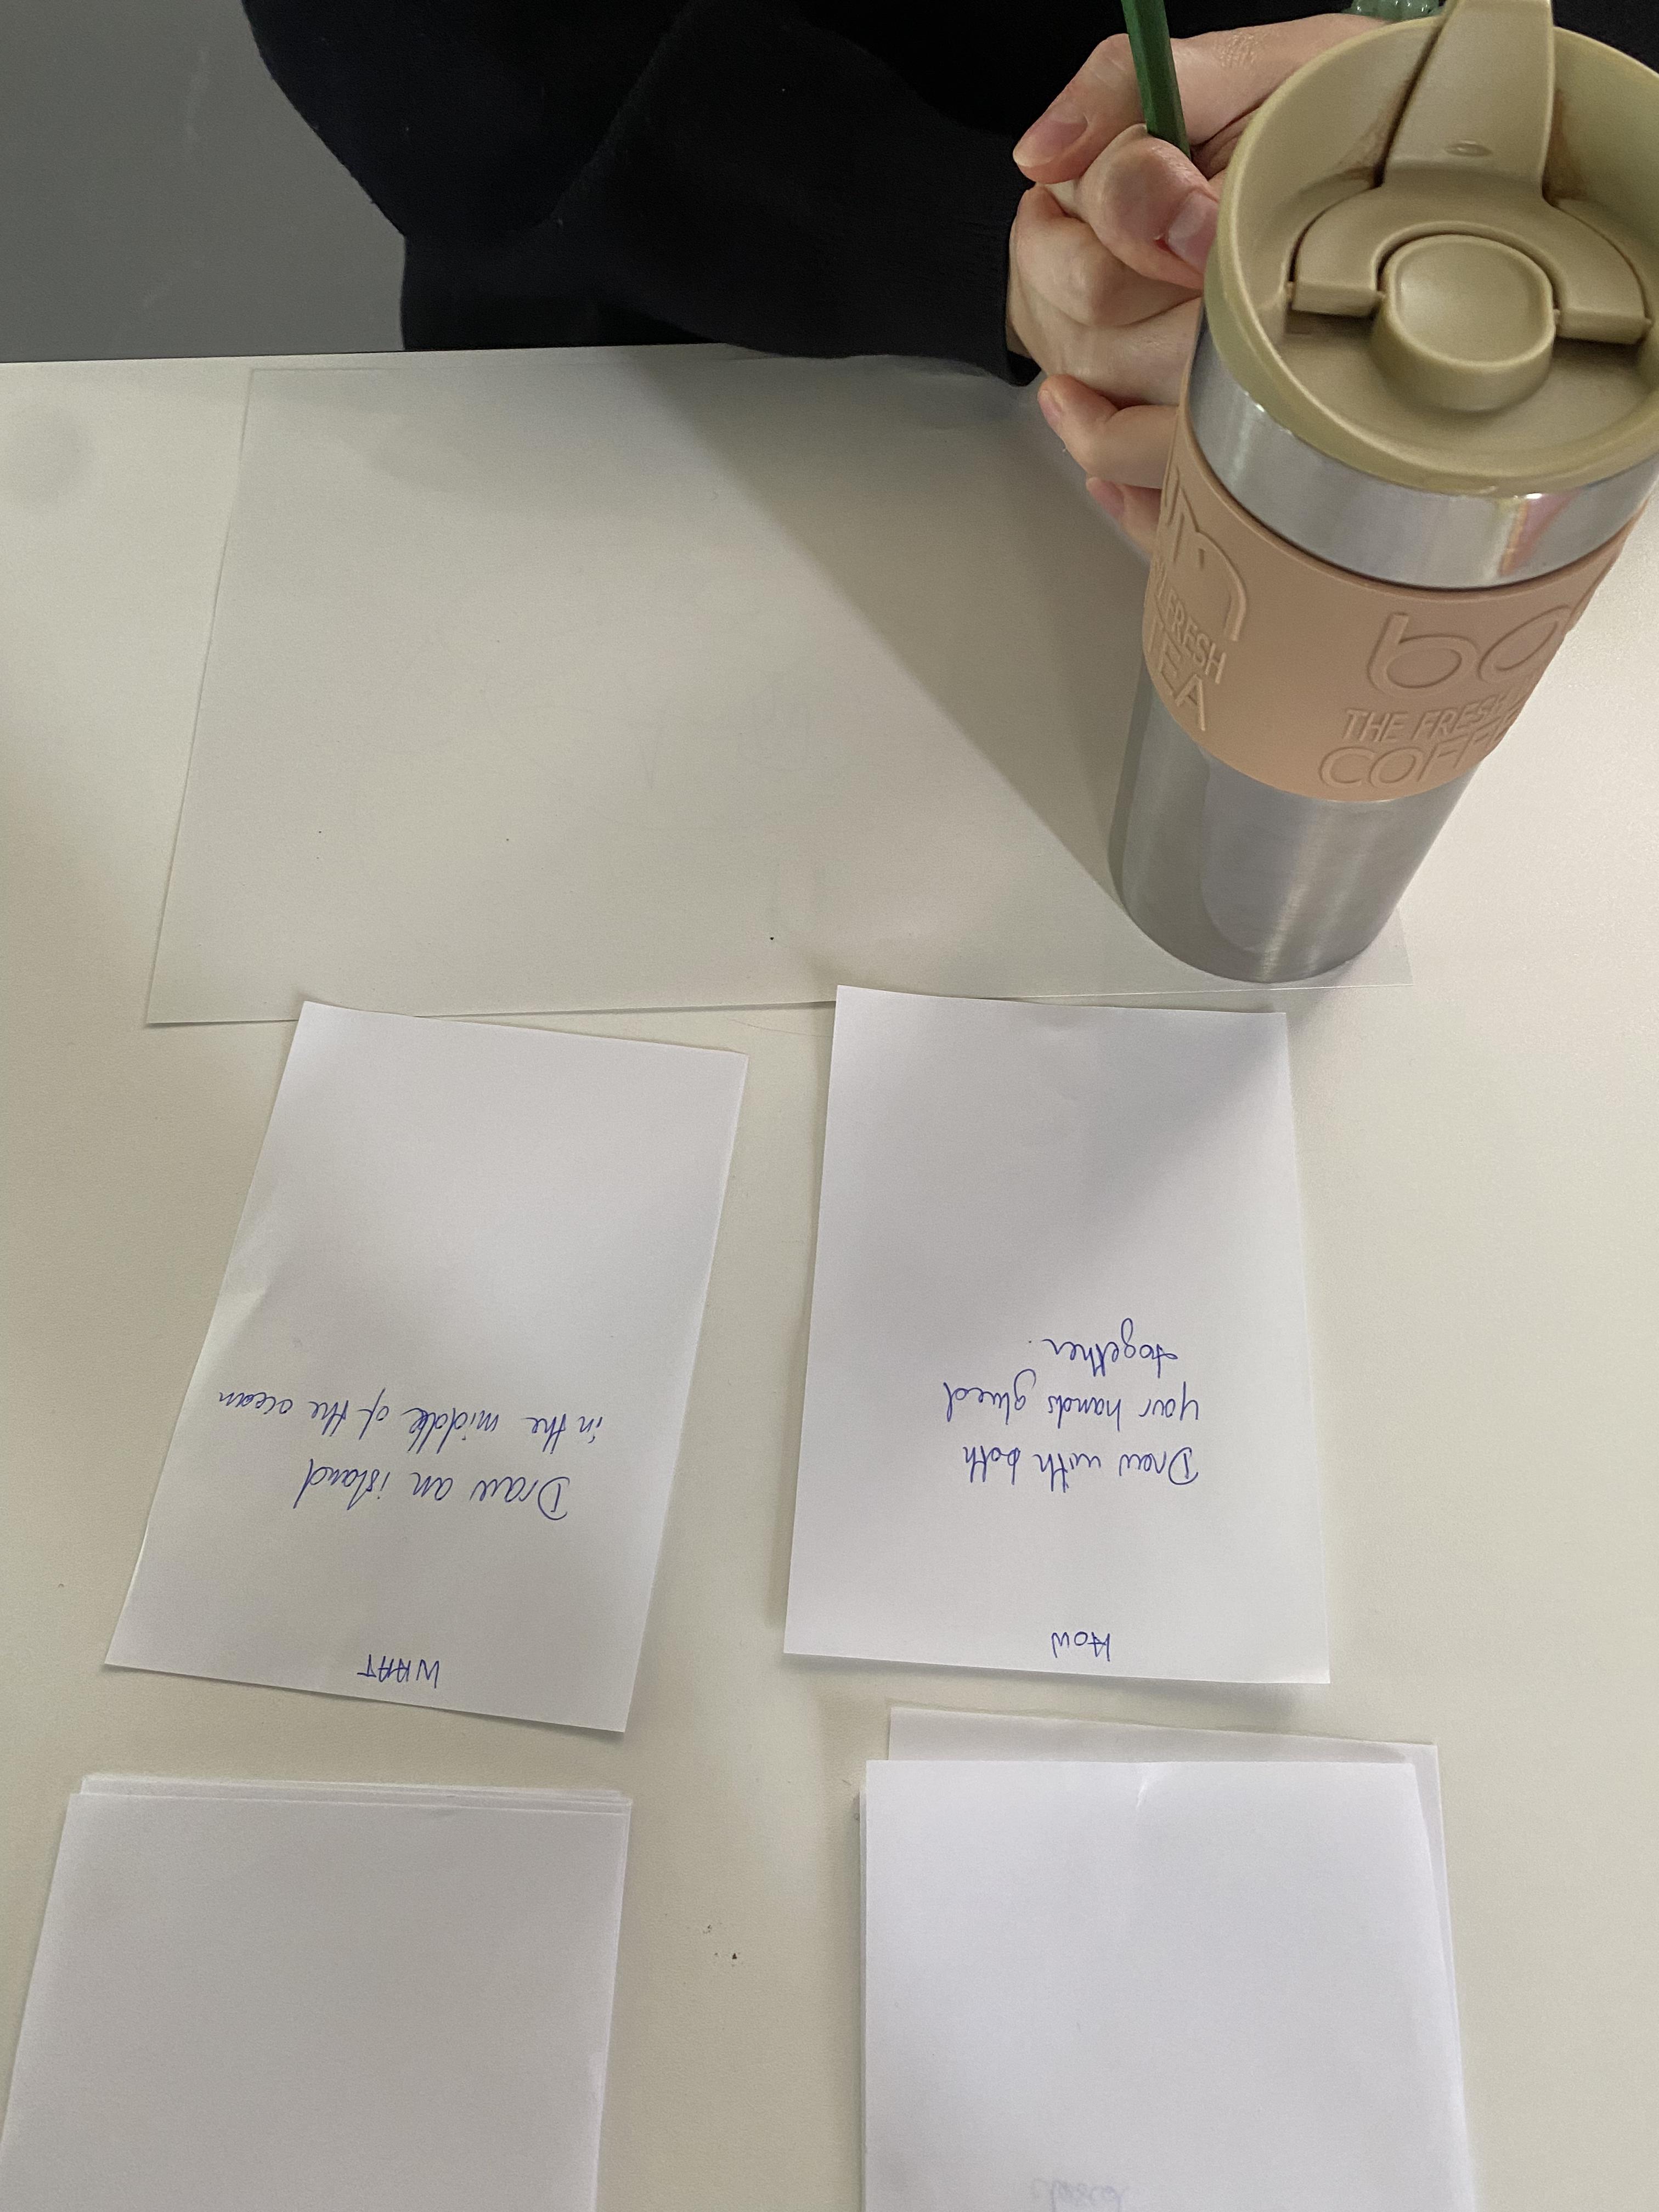 um
FRESH
TEA
bo
THE FRESH
COFFE
WHAT
Draw an island
in the middle of the ocean
HOW
Draw with both
your hands glued
together.